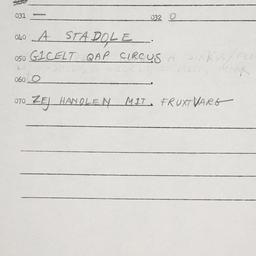 031 — 032 0
040 A STADOLE .
050 GICELT QAP CIRCUS
060 0 .
070 ZEJ HANDLEN MIT. FRUXTVARE